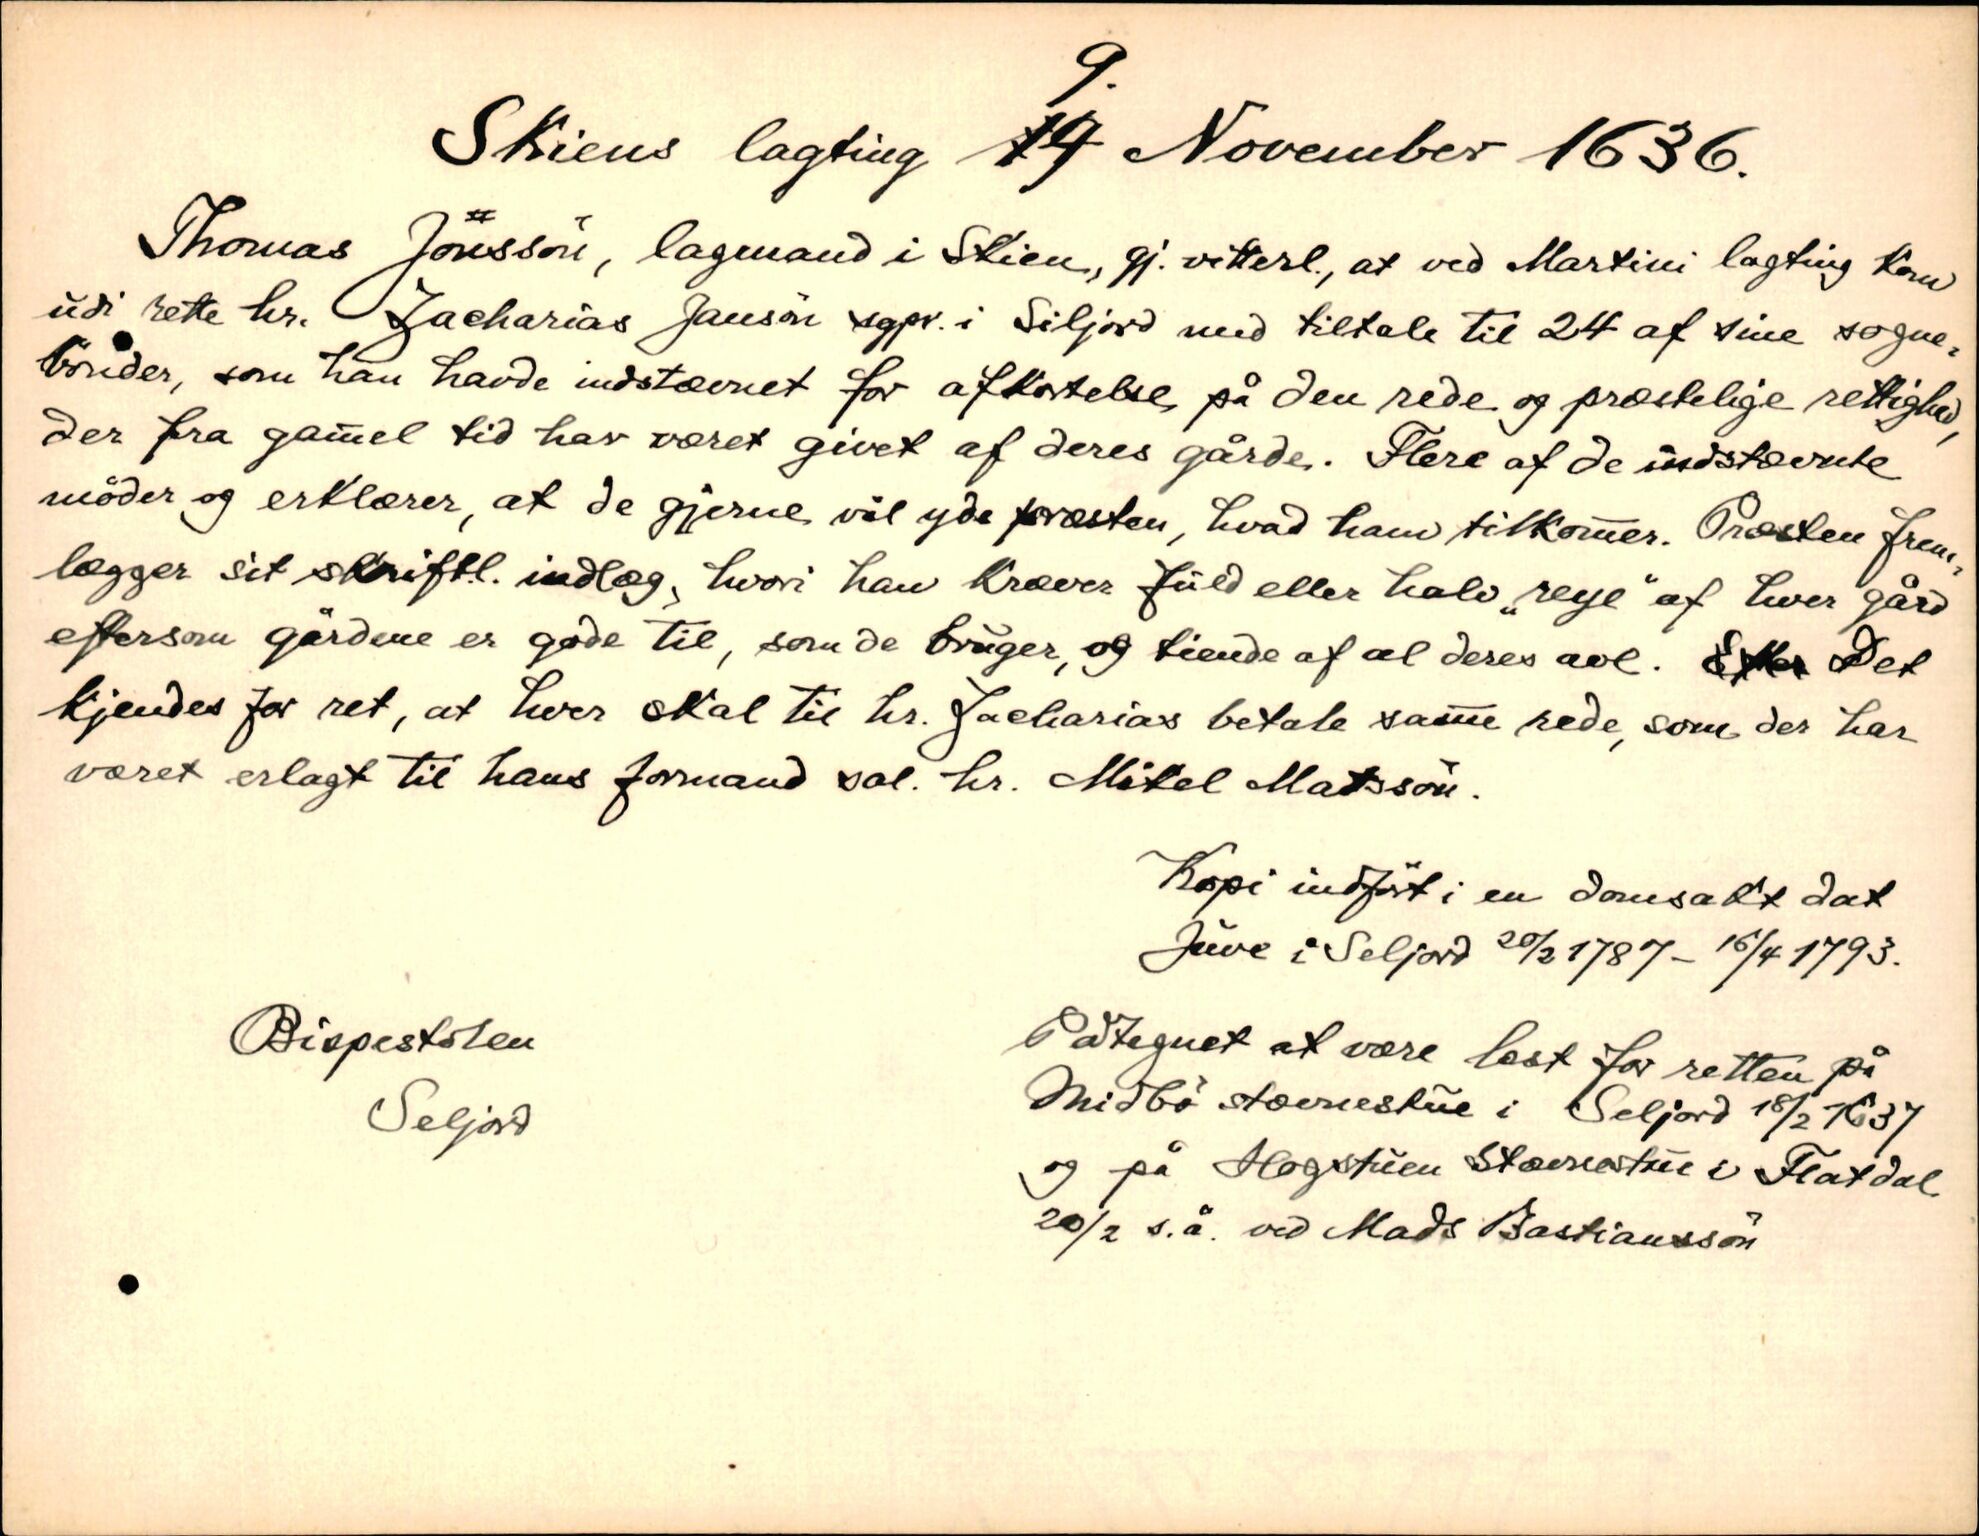 9.
Skiens lagting 14 November 1636.
Thomas Jönssön, lagmand i Skien, gj. vitterl., at ved Martini lagting kom
udi rette hr. Zacharias Jansön sgpr. i Siljord med tiltale til 24 af sine sogne-
bönder, som han havde indstævnet for afkortelse på den rede og præstelige rettighed,
der fra gam̄el tid har været givet af deres gårde. Flere af de indstævnte
möder og erklærer, at de gjerne vil yde præsten, hvad ham tilkom̄er. Præsten frem-
lægger sit skriftl. indlæg, hvori han kræver fuld eller halv „reye" af hver gård
eftersom gårdene er gode til, som de bruger, og tiende af al deres avl. Efter Det
kjendes for ret, at hver skal til hr. Zacharias betale sam̄e rede, som der har
været erlagt til hans formand sal. hr. Mikel Matssön.
Kopi indfört i en domsakt dat
Juve i Seljord 20/2 1787 - 16/4 1793.
Bispestolen
Seljord
Påtegnet at være læst for retten på
Midbö stævnestue i Seljord 18/2 1637
og på Hogstuen stævnestue i Flatdal
20/2 s.å. ved Mads Bastianssön